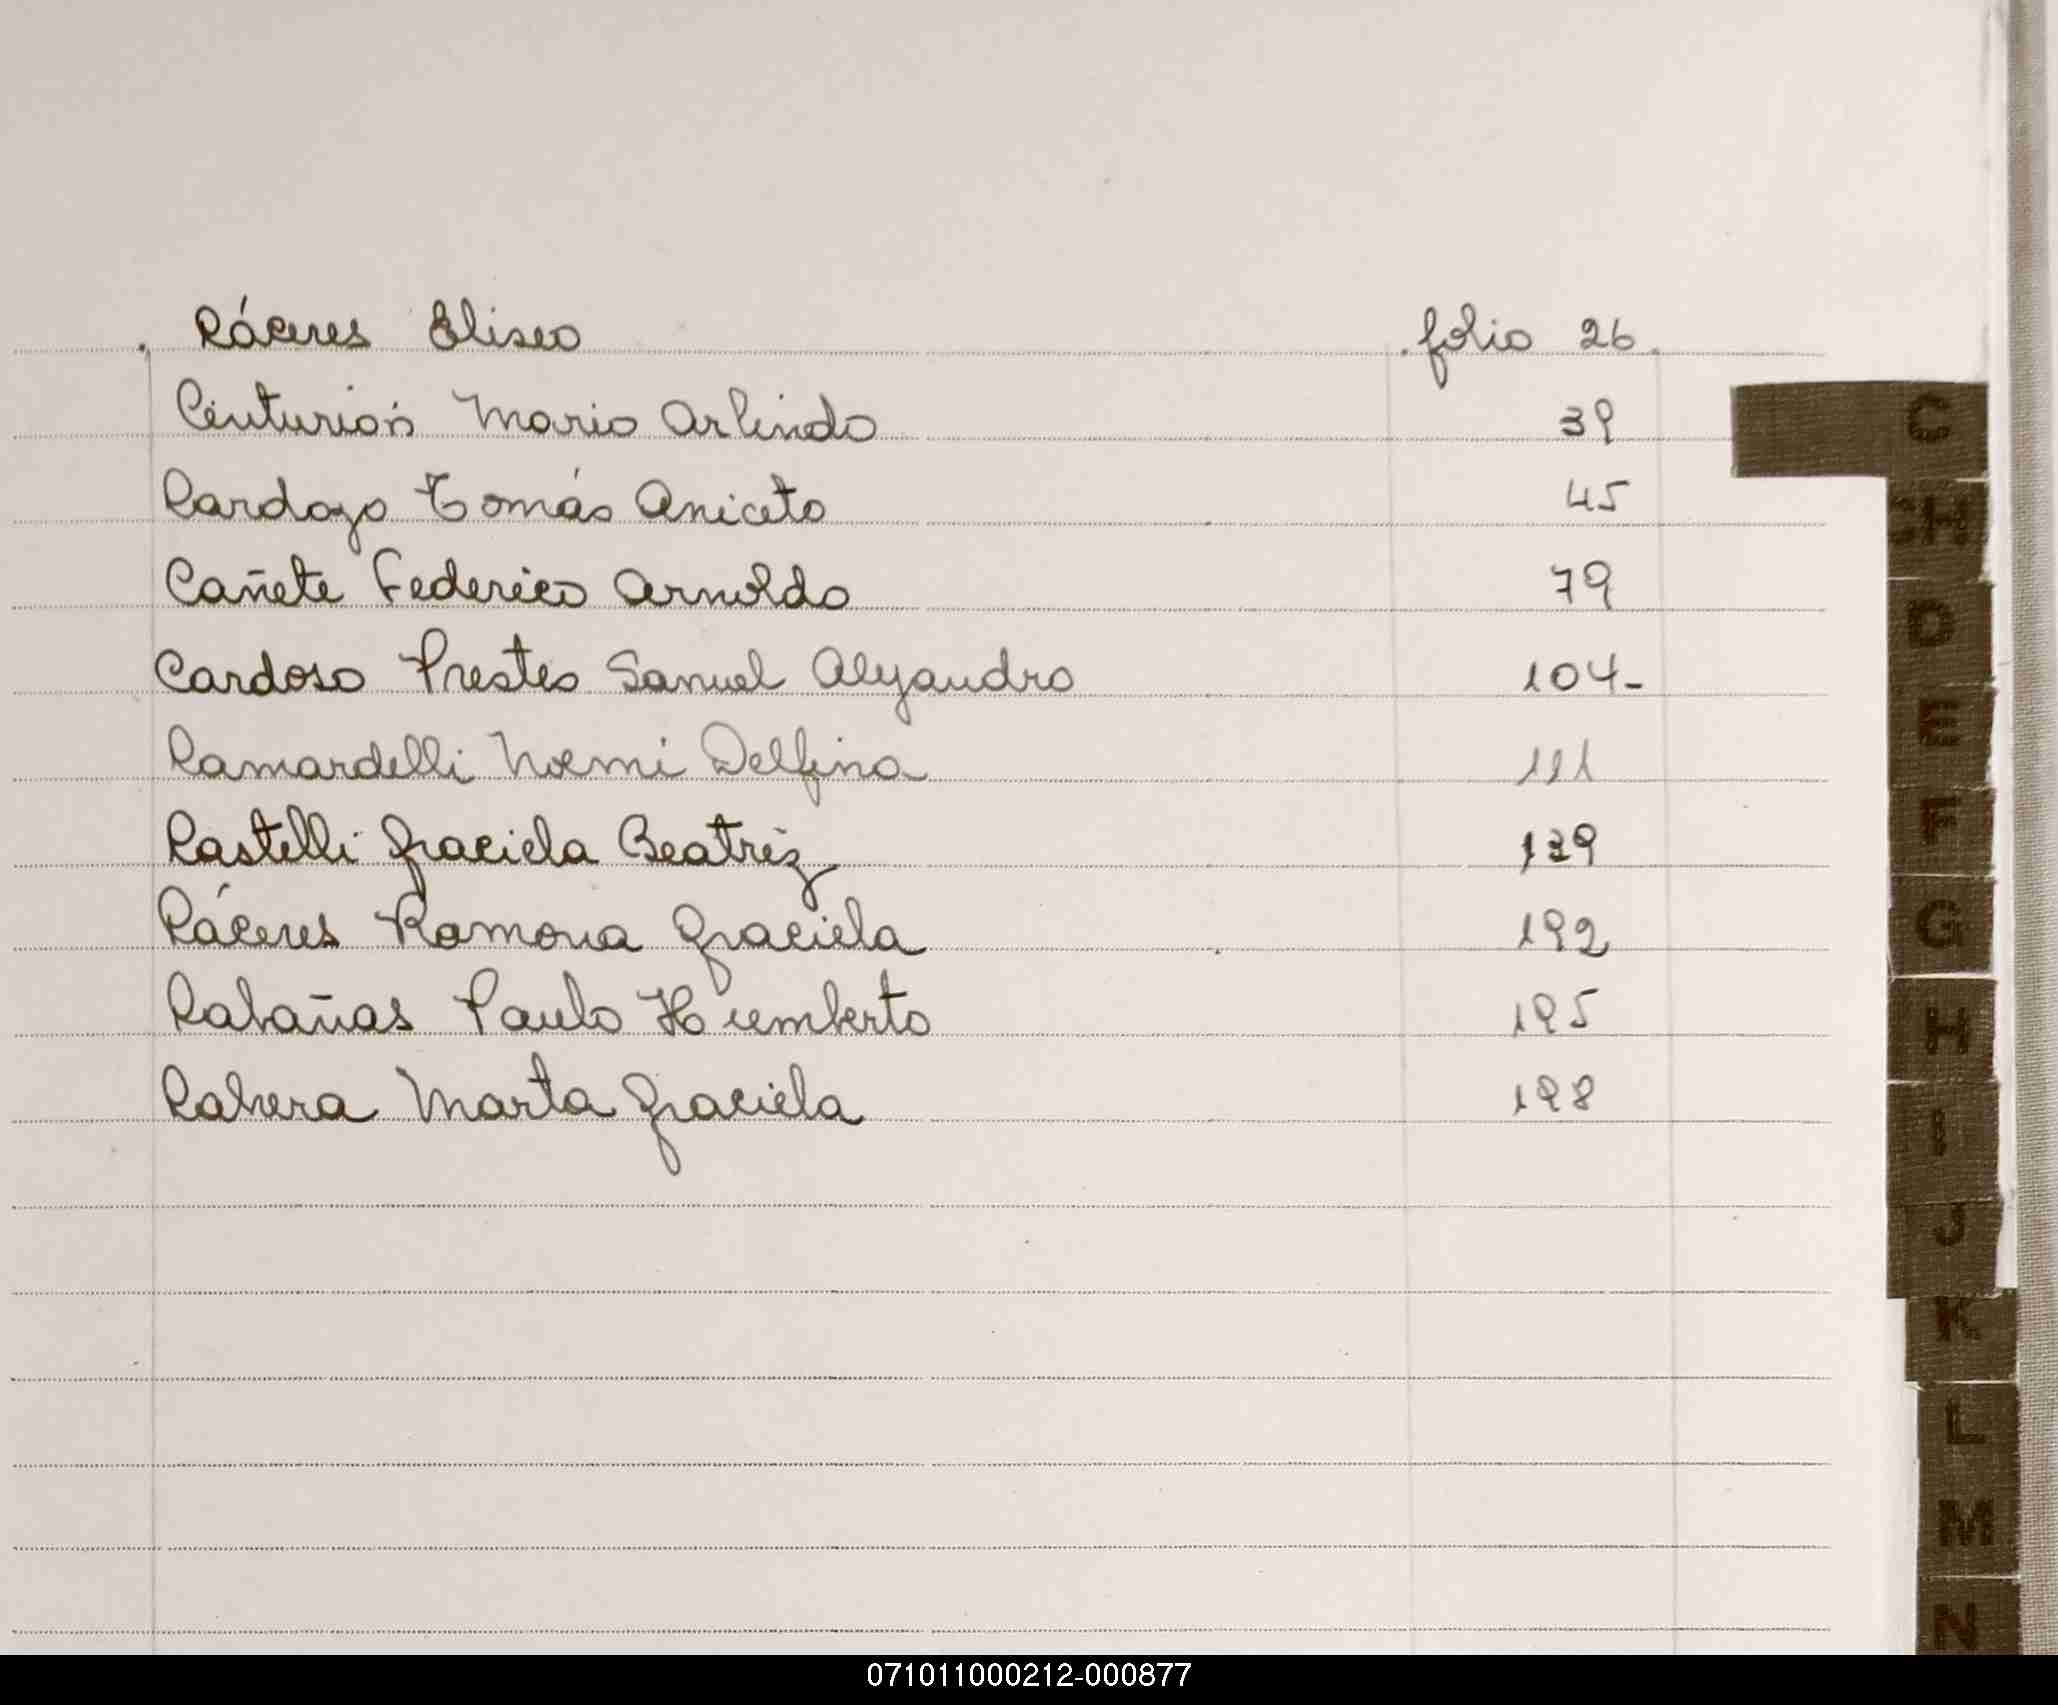 Cáceres Eliseo folio 26
Centurión Mario Arlindo 39
Cardozo Tomás Aniceto 45
Cañete Federico Arnoldo 79
Cardoso Prestes Samuel Alejandro 104-
Camardelli Noemi Delfina 111
Castelli Graciela Beatriz 139
Cáceres Ramona Graciela 192
Cabañas Paulo Humberto 195
Cabrera Marta Graciela 198
C
CH
D
E
F
G
H
I
J
K
L
M
N
071011000212-000877